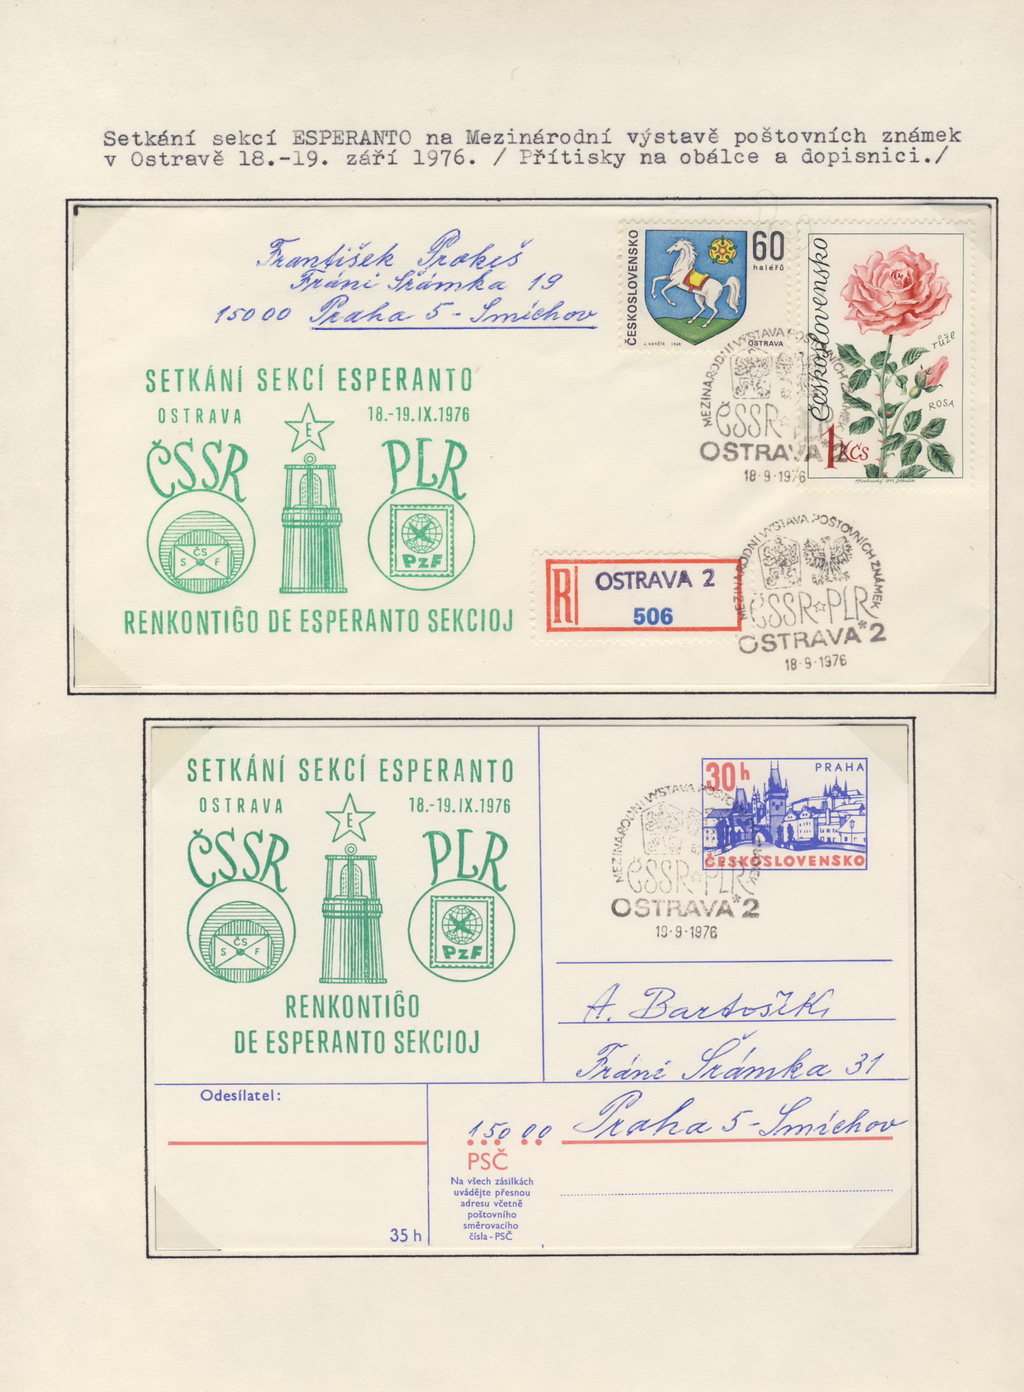 Setkání sekcí ESPERANTO na Mezinárodní výstavě poštovních známek
v Ostravě 18.-19. září 1976. / Přítisky na obálce a dopisnici./
František Prokeš
Fráni Šrámka 19
15000 Praha 5 - Smíchov
ČESKOSLOVENSKO
60
haléřů
OSTRAVA
Československo
růže
ROSA
1 Kčs
MEZINÁRODNÍ VÝSTAVA POŠTOVNÍCH ZNÁMEK
ČSSR PLR
OSTRAVA * 2
18·9·1976
SETKÁNÍ SEKCÍ ESPERANTO
OSTRAVA 18.-19.IX.1976
E
ČSSR PLR
ČS
S F
PzF
RENKONTIĜO DE ESPERANTO SEKCIOJ
R OSTRAVA 2
506
MEZINÁRODNÍ VÝSTAVA POŠTOVNÍCH ZNÁMEK
ČSSR☆PLR
OSTRAVA * 2
18·9·1976
SETKÁNÍ SEKCÍ ESPERANTO
OSTRAVA 18.-19.IX.1976
E
ČSSR PLR
ČS
S F
PzF
RENKONTIĜO
DE ESPERANTO SEKCIOJ
30h PRAHA
ČESKOSLOVENSKO
MEZINÁRODNÍ VÝSTAVA
ČSSR☆PLR
OSTRAVA * 2
19·9·1976
A. Bartošík
Fráni Šrámka 31
150 00 Praha 5 - Smíchov
Odesílatel:
PSČ
Na všech zásilkách
uvádějte přesnou
adresu včetně
poštovního
směrovacího
čísla - PSČ
35 h